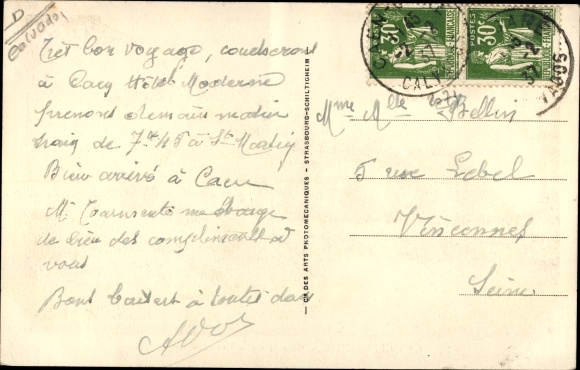 D
Calvados
Très bon voyage, coucherons
à Caen Hôtel Moderne
prenons demain matin
train de 7h45 à St Martin
Bien arrivé à Caen
Mr me charge
de bien des compliments
vous
Bons baisers à toutes deux
CIE DES ARTS PHOTOMECANIQUES - STRASBOURG-SCHILTIGHEIM
POSTES
30c
REPUBLIQUE FRANÇAISE
30c
REPUBLIQUE FRANÇAISE
CAEN
GARE
Mme Mlle Bellin
5 rue Lebel
Vincennes
Seine